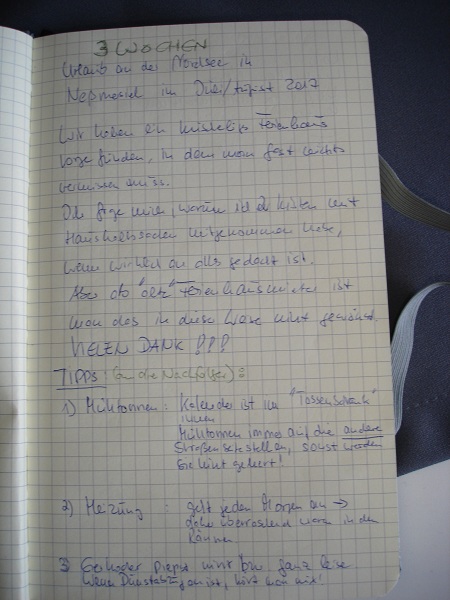 3 WOCHEN
Urlaub an der Nordsee in
im Juli/August 2017
Wir haben ein Ferienhaus
vorgefunden, in dem man fast nichts
vermissen muss.
Ich frage mich, warum ich 2 Kisten mit
Haushaltssachen mitgenommen habe,
wenn wirklich an alles gedacht ist.
Aber als "alte" Ferienhausmieter ist
man das in dieser Weise nicht gewöhnt.
VIELEN DANK !!!
TIPPS: (an die Nachfolger):
1) Mülltonnen: Kalender ist im "Tassenschrank"
innen
Mülltonnen immer auf die andere
Straßenseite stellen, sonst werden
sie nicht geleert!
2) Heizung : geht jeden Morgen an →
daher überraschend warm in den
Räumen
3) Geschirr piepst nicht bzw. ganz leise
Wenn Dunstabzug an ist, hört man nix!